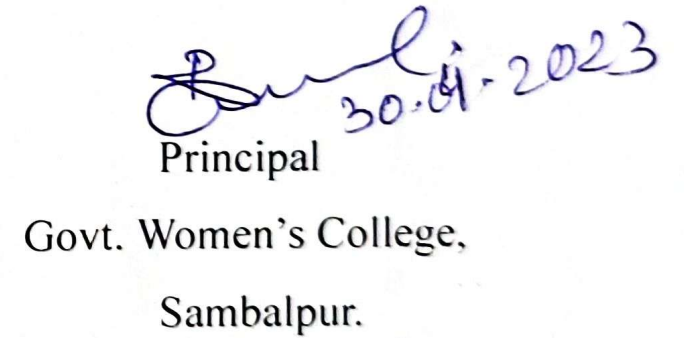 30.01.2023
Principal
Govt. Women's College,
Sambalpur.